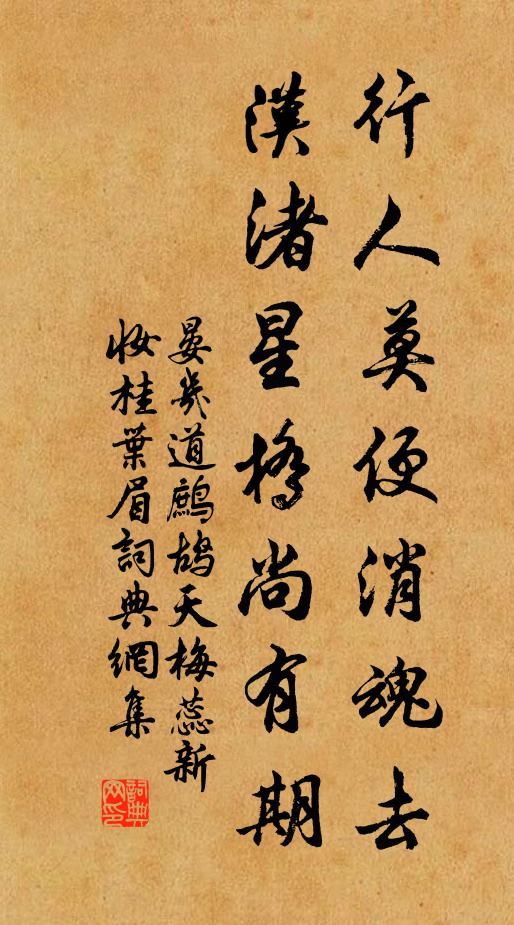 行人莫便消魂去
漢渚星橋尚有期
晏幾道鷓鴣天梅蕊新
妝桂葉眉詞典網集
詞典
网印